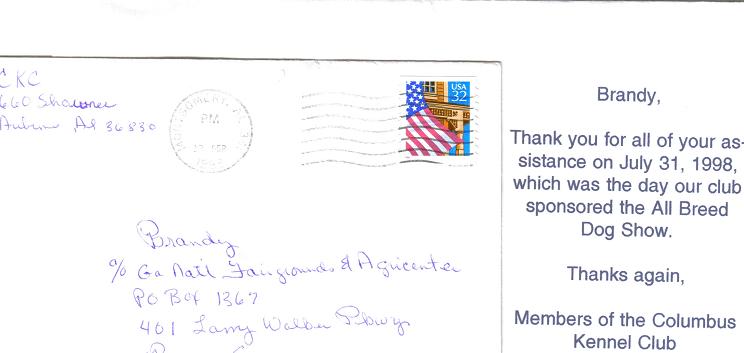 CKC
660 Shawnee
Auburn Al 36830
MONTGOMERY, AL
PM
SEP
USA
32
Brandy
% Ga Nat'l Fairgrounds & Agricenter
PO Box 1367
401 Larry Walker Pkwy
Brandy,
Thank you for all of your as-
sistance on July 31, 1998,
which was the day our club
sponsored the All Breed
Dog Show.
Thanks again,
Members of the Columbus
Kennel Club